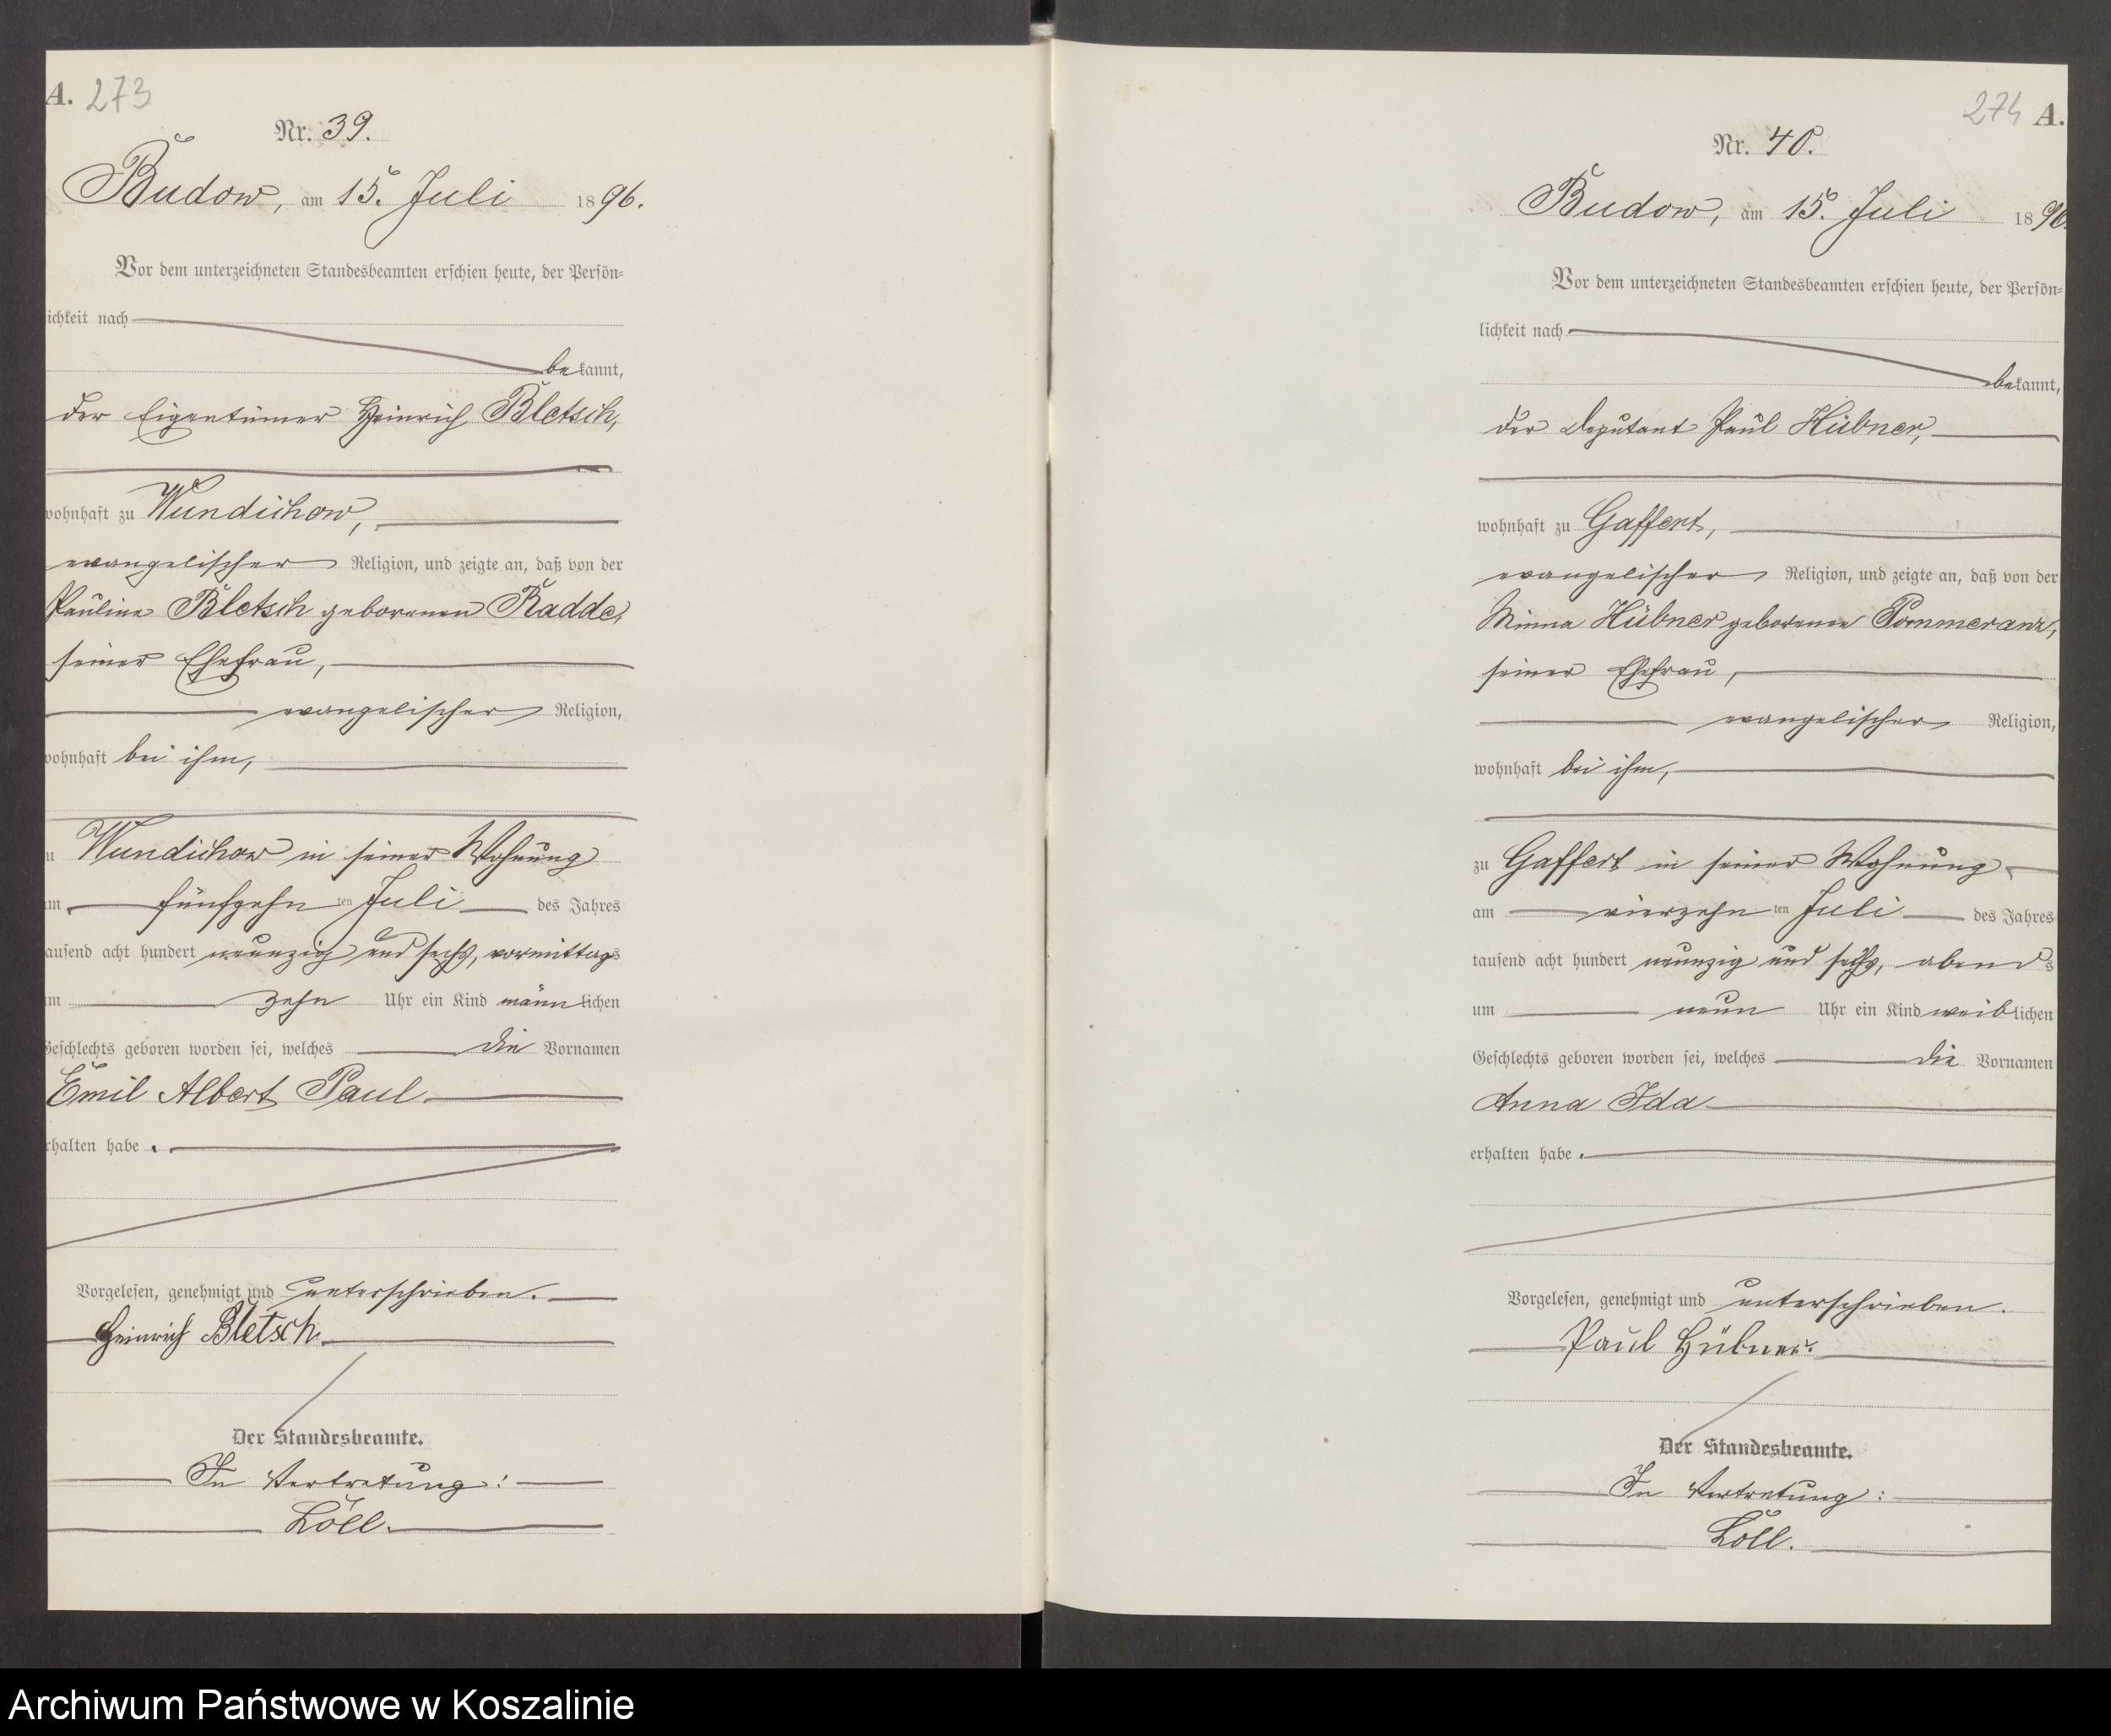 A. 273
Nr. 39.
Budow, am 15. Juli 1896.
Vor dem unterzeichneten Standesbeamten erschien heute, der Persön=
lichkeit nach
bekannt,
der Eigentümer Heinrich Bletsch,
wohnhaft zu Wundichow,
evangelischer Religion, und zeigte an, daß von der
Pauline Bletsch geborenen Radde,
seiner Ehefrau,
evangelischer Religion,
wohnhaft bei ihm,
zu Wundichow in seiner Wohnung
am fünfzehnten Juli des Jahres
tausend acht hundert neunzig und sechs, vormittags
um zehn Uhr ein Kind männlichen
Geschlechts geboren worden sei, welches die Vornamen
Emil Albert Paul
erhalten habe.
Vorgelesen, genehmigt und unterschrieben.
Heinrich Bletsch
Der Standesbeamte.
In Vertretung:
Löll.
274 A.
Nr. 40.
Budow, am 15. Juli 1896.
Vor dem unterzeichneten Standesbeamten erschien heute, der Persön=
lichkeit nach
bekannt,
der Deputant Paul Hübner,
wohnhaft zu Gaffert,
evangelischer Religion, und zeigte an, daß von der
Minna Hübner geborenen Pommeranz,
seiner Ehefrau,
evangelischer Religion,
wohnhaft bei ihm,
zu Gaffert in seiner Wohnung
am vierzehnten Juli des Jahres
tausend acht hundert neunzig und sechs, abends
um neun Uhr ein Kind weiblichen
Geschlechts geboren worden sei, welches die Vornamen
Anna Ida
erhalten habe.
Vorgelesen, genehmigt und unterschrieben.
Paul Hübner
Der Standesbeamte.
In Vertretung:
Löll.
Archiwum Państwowe w Koszalinie